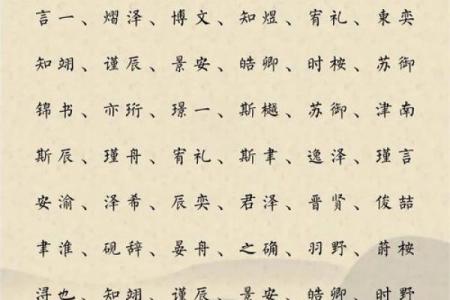 言一、熠泽、博文、知煜、宥礼、東奕
知翊、谨辰、景安、皓卿、时桉、苏御
锦书、亦珩、璟一、斯樾、苏御、津南
斯辰、瑾舟、宥礼、斯聿、逸泽、瑾言
安渝、泽希、辰奕、君泽、晋贤、俊喆
聿淮、砚辞、晏舟、之确、羽野、蔚桉
浔也、知翊、谨辰、景安、皓卿、时野